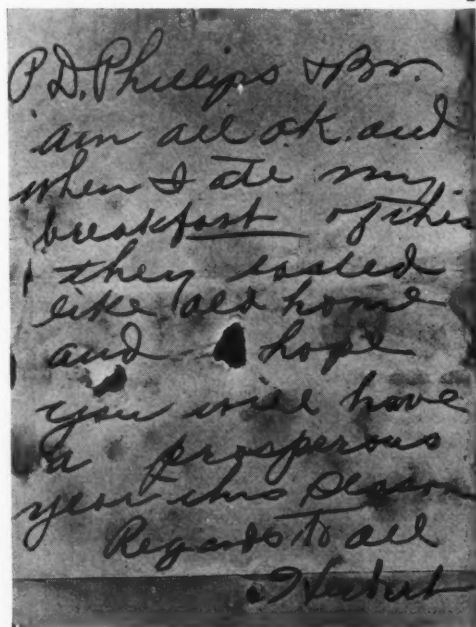 P.D. Phillips & Br.
am all o.k. and
when I ate my
breakfast of this
they tasted
like old home
and hope
you will have
a prosperous
year this season
Regards to all
Herbert